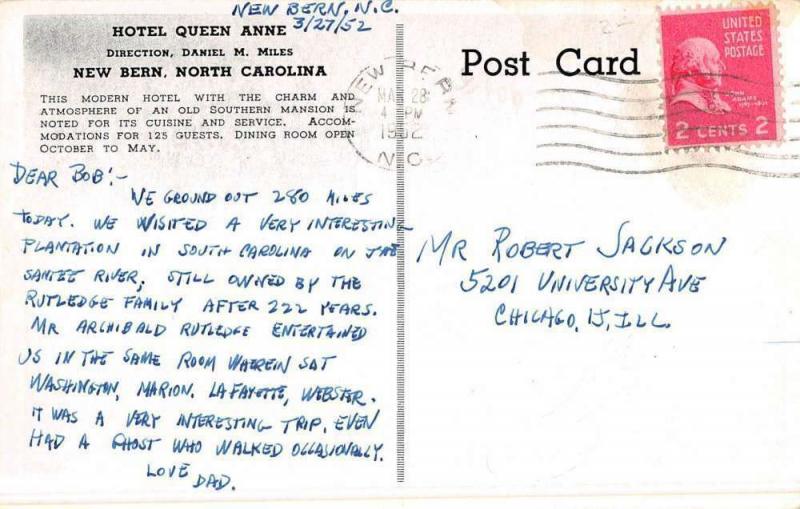 NEW BERN, N.C.
3/27/52
HOTEL QUEEN ANNE
DIRECTION, DANIEL M. MILES
NEW BERN, NORTH CAROLINA
THIS MODERN HOTEL WITH THE CHARM AND
ATMOSPHERE OF AN OLD SOUTHERN MANSION IS
NOTED FOR ITS CUISINE AND SERVICE. ACCOM-
MODATIONS FOR 125 GUESTS. DINING ROOM OPEN
OCTOBER TO MAY.
DEAR BOB:-
WE GROUND OUT 280 MILES
TODAY. WE WISITED A VERY INTERESTING
PLANTATION IN SOUTH CAROLINA ON THE
SANTEE RIVER, STILL OWNED BY THE
RUTLEDGE FAMILY AFTER 222 YEARS.
MR ARCHIBALD RUTLEDGE ENTERTAINED
US IN THE SAME ROOM WHEREIN SAT
WASHINGTON, MARION, LAFAYETTE, WEBSTER.
IT WAS A VERY INTERESTING TRIP, EVEN
HAD A GHOST WHO WALKED OCCASIONALLY.
LOVE
DAD.
Post Card
NEW BERN
MAR 28
4 PM
1952
N.C.
UNITED
STATES
POSTAGE
JOHN
ADAMS
2 CENTS 2
MR ROBERT JACKSON
5201 UNIVERSITY AVE
CHICAGO, 15, ILL.